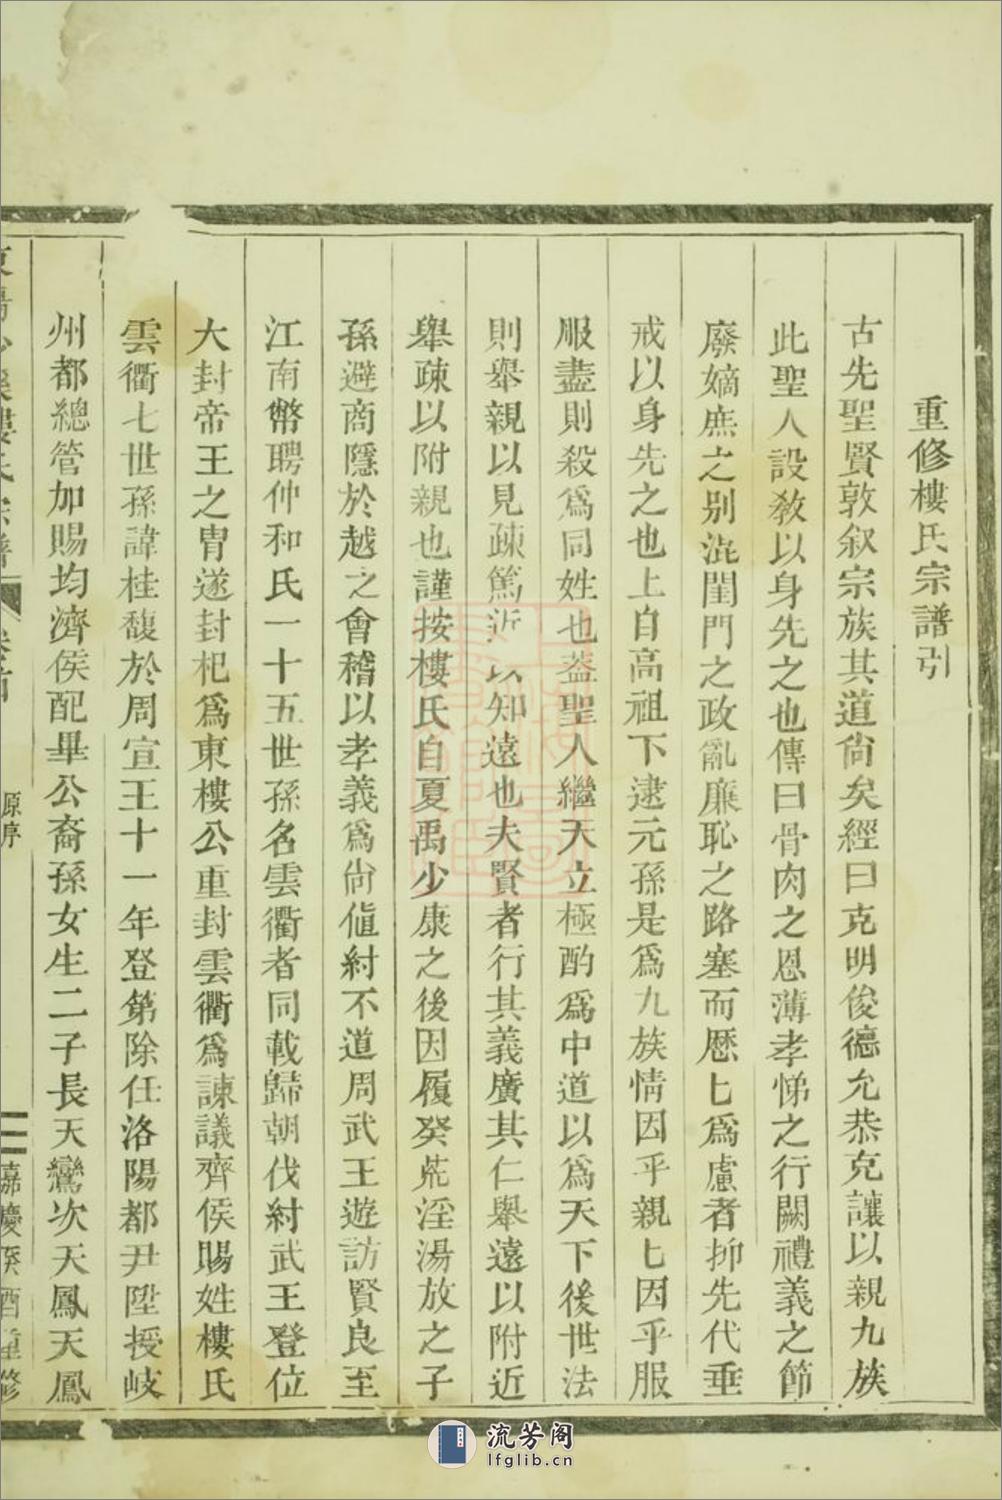 重修樓氏宗譜引
古先聖賢敦叙宗族其道尙矣經曰克明俊德允恭克讓以親九族
此聖人設敎以身先之也傳曰骨肉之恩薄孝悌之行闕禮義之節
廢嫡庶之别混閨門之政亂廉恥之路塞而歷七爲慮者抑先代垂
戒以身先之也上自高祖下逮元孫是爲九族情因乎親七因乎服
服盡則殺爲同姓也葢聖人繼天立極酌爲中道以爲天下後世法
則舉親以見疎篤近以知遠也夫賢者行其義廣其仁舉遠以附近
舉疎以附親也謹按樓氏自夏禹少康之後因履癸荒淫湯放之子
孫避商隱於越之會稽以孝義爲尙値紂不道周武王遊訪賢良至
江南幣聘仲和氏一十五世孫名雲衢者同載歸朝伐紂武王登位
大封帝王之冑遂封杞爲東樓公重封雲衢爲諫議齊侯賜姓樓氏
雲衢七世孫諱桂馥於周宣王十一年登第除任洛陽都尹陞授岐
州都總管加賜均濟侯配畢公裔孫女生二子長天鸞次天鳳天鳳
樓氏宗譜
原序
嘉慶癸酉重修
流芳阁
lfglib.cn